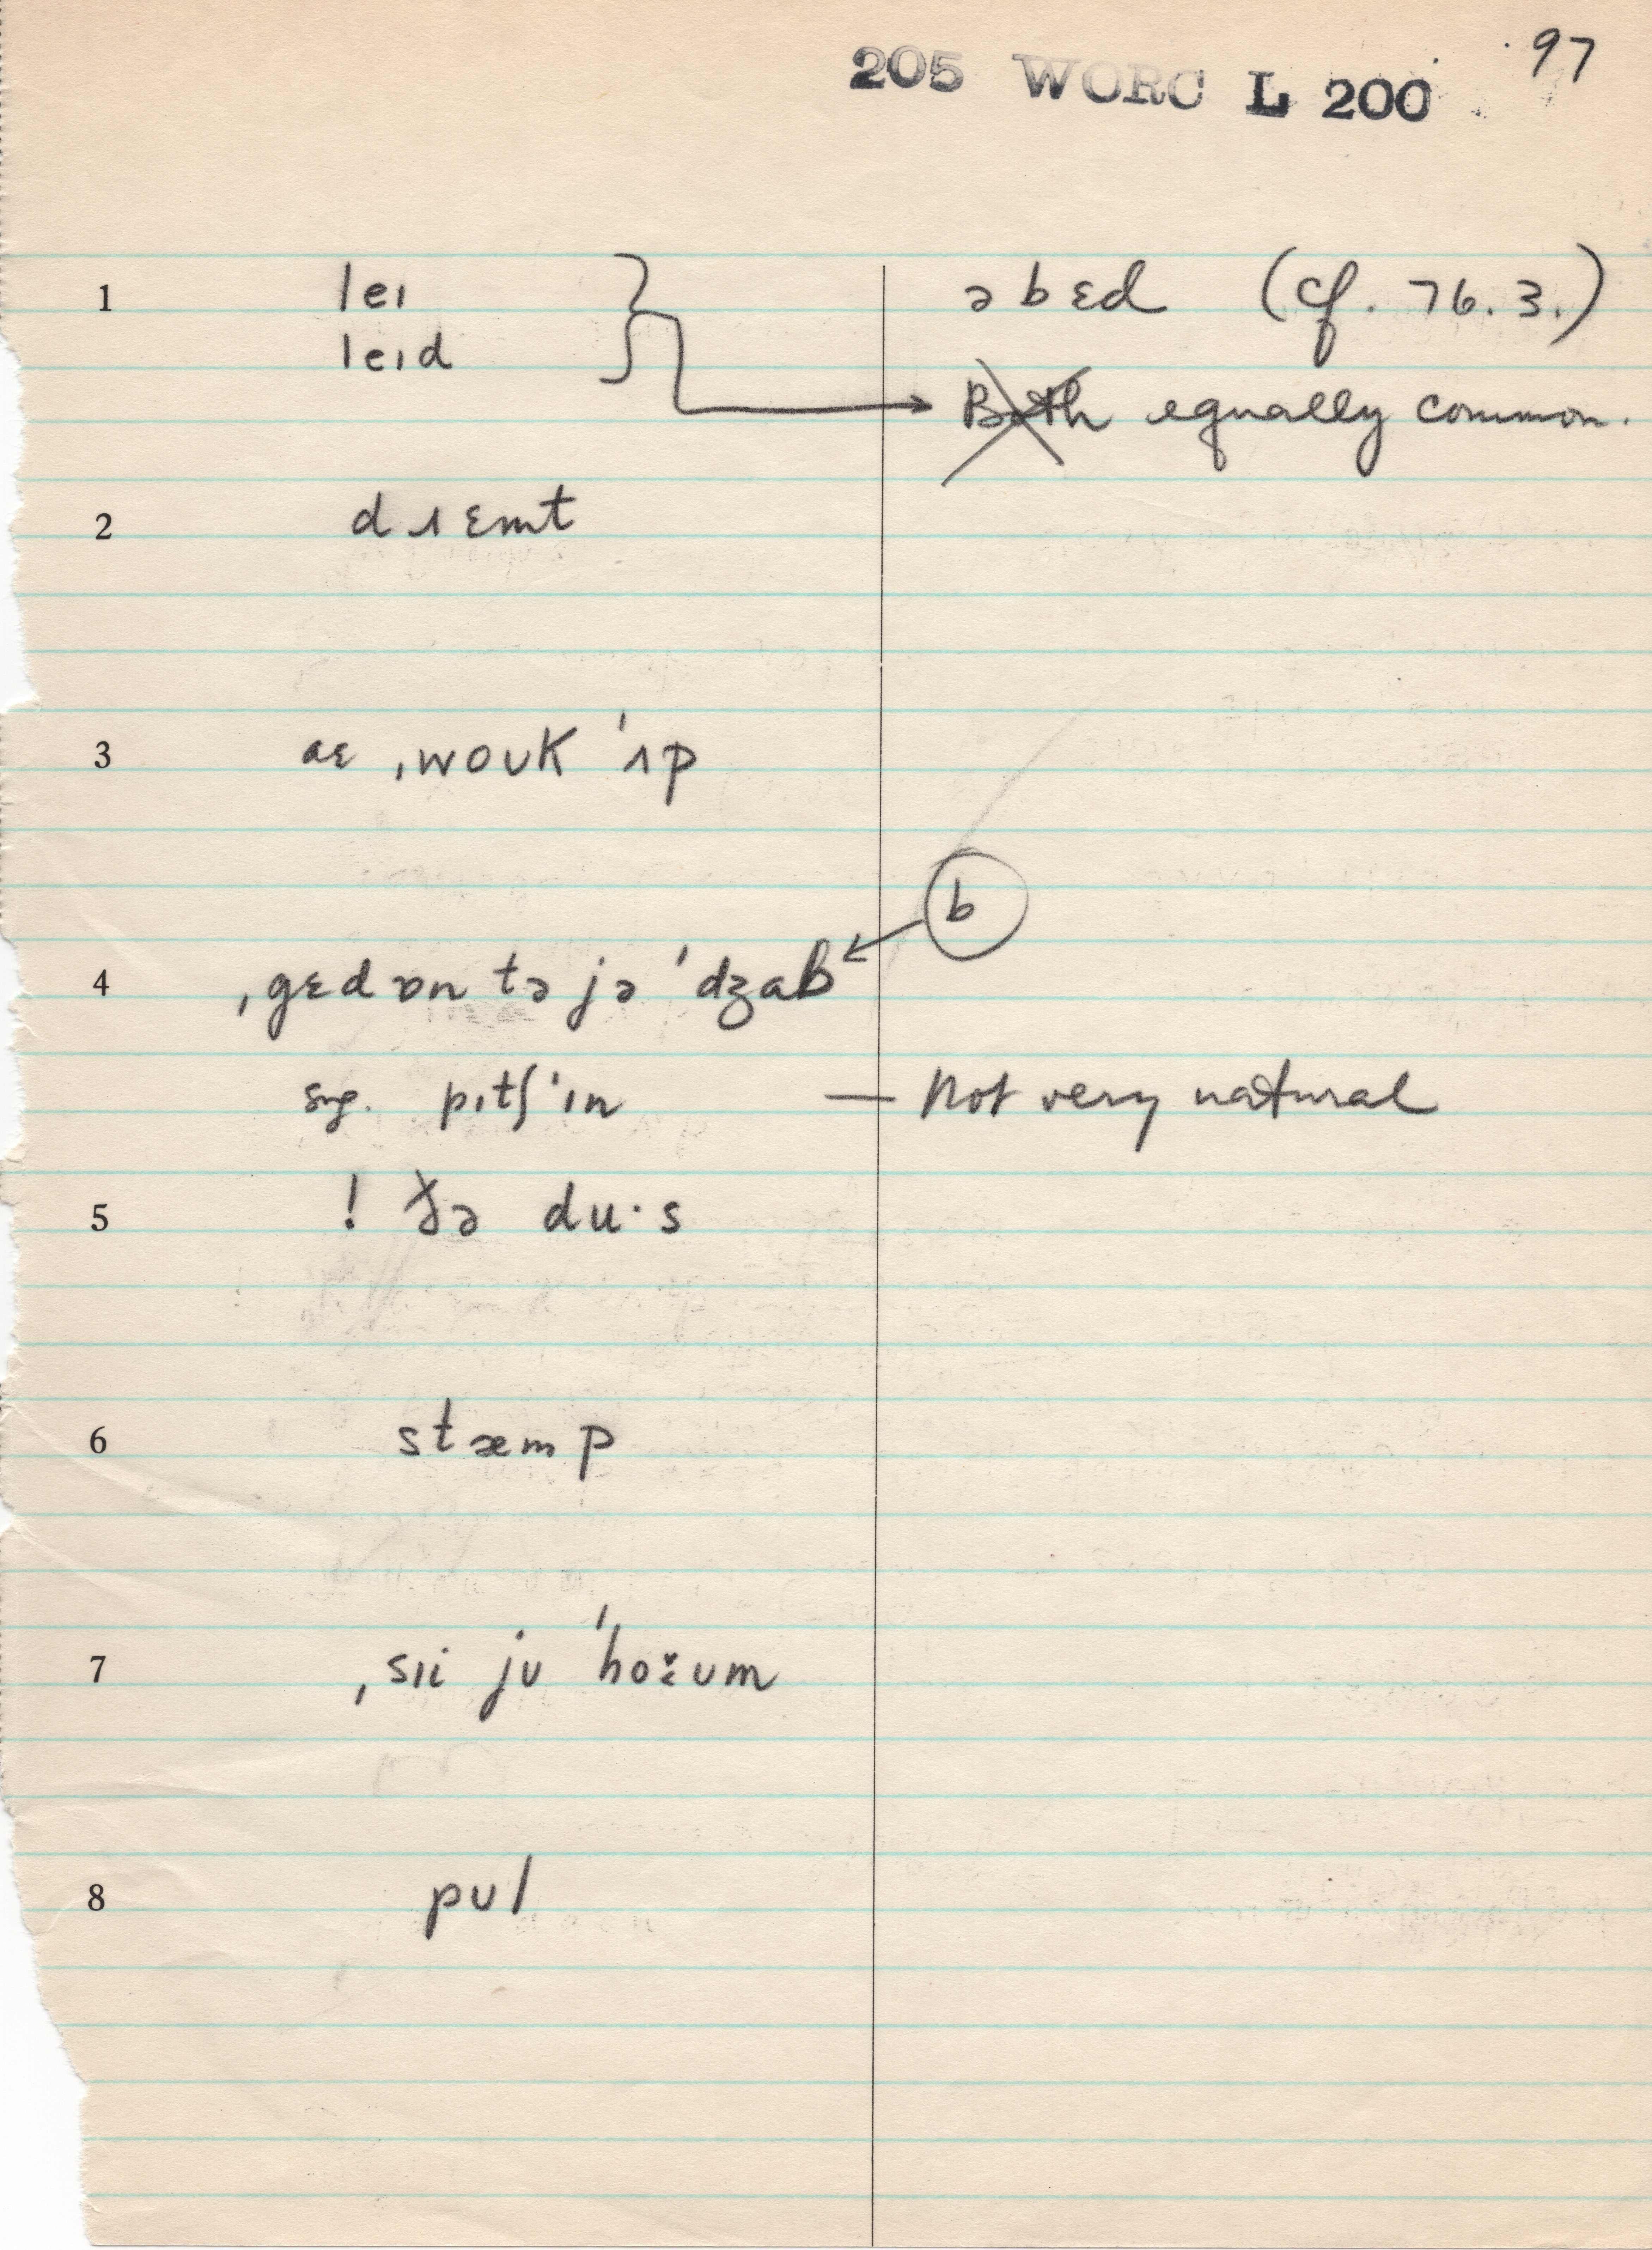 97
205 WORC L 200
1 leɪ } ə b ɛd (cf. 76.3.)
leɪd Both equally common.
2 dɹɛmt
3 aɛ ˌwoʊk ˈʌp
b
4 ˌgɛd ɒn tə jə ˈdʒab
sug. pɪtʃ ˈɪn — Not very natural
5 ! ðə du·s
6 stæmp
7 ˌsɪi jʊ ˈhoʊm
8 pʊl